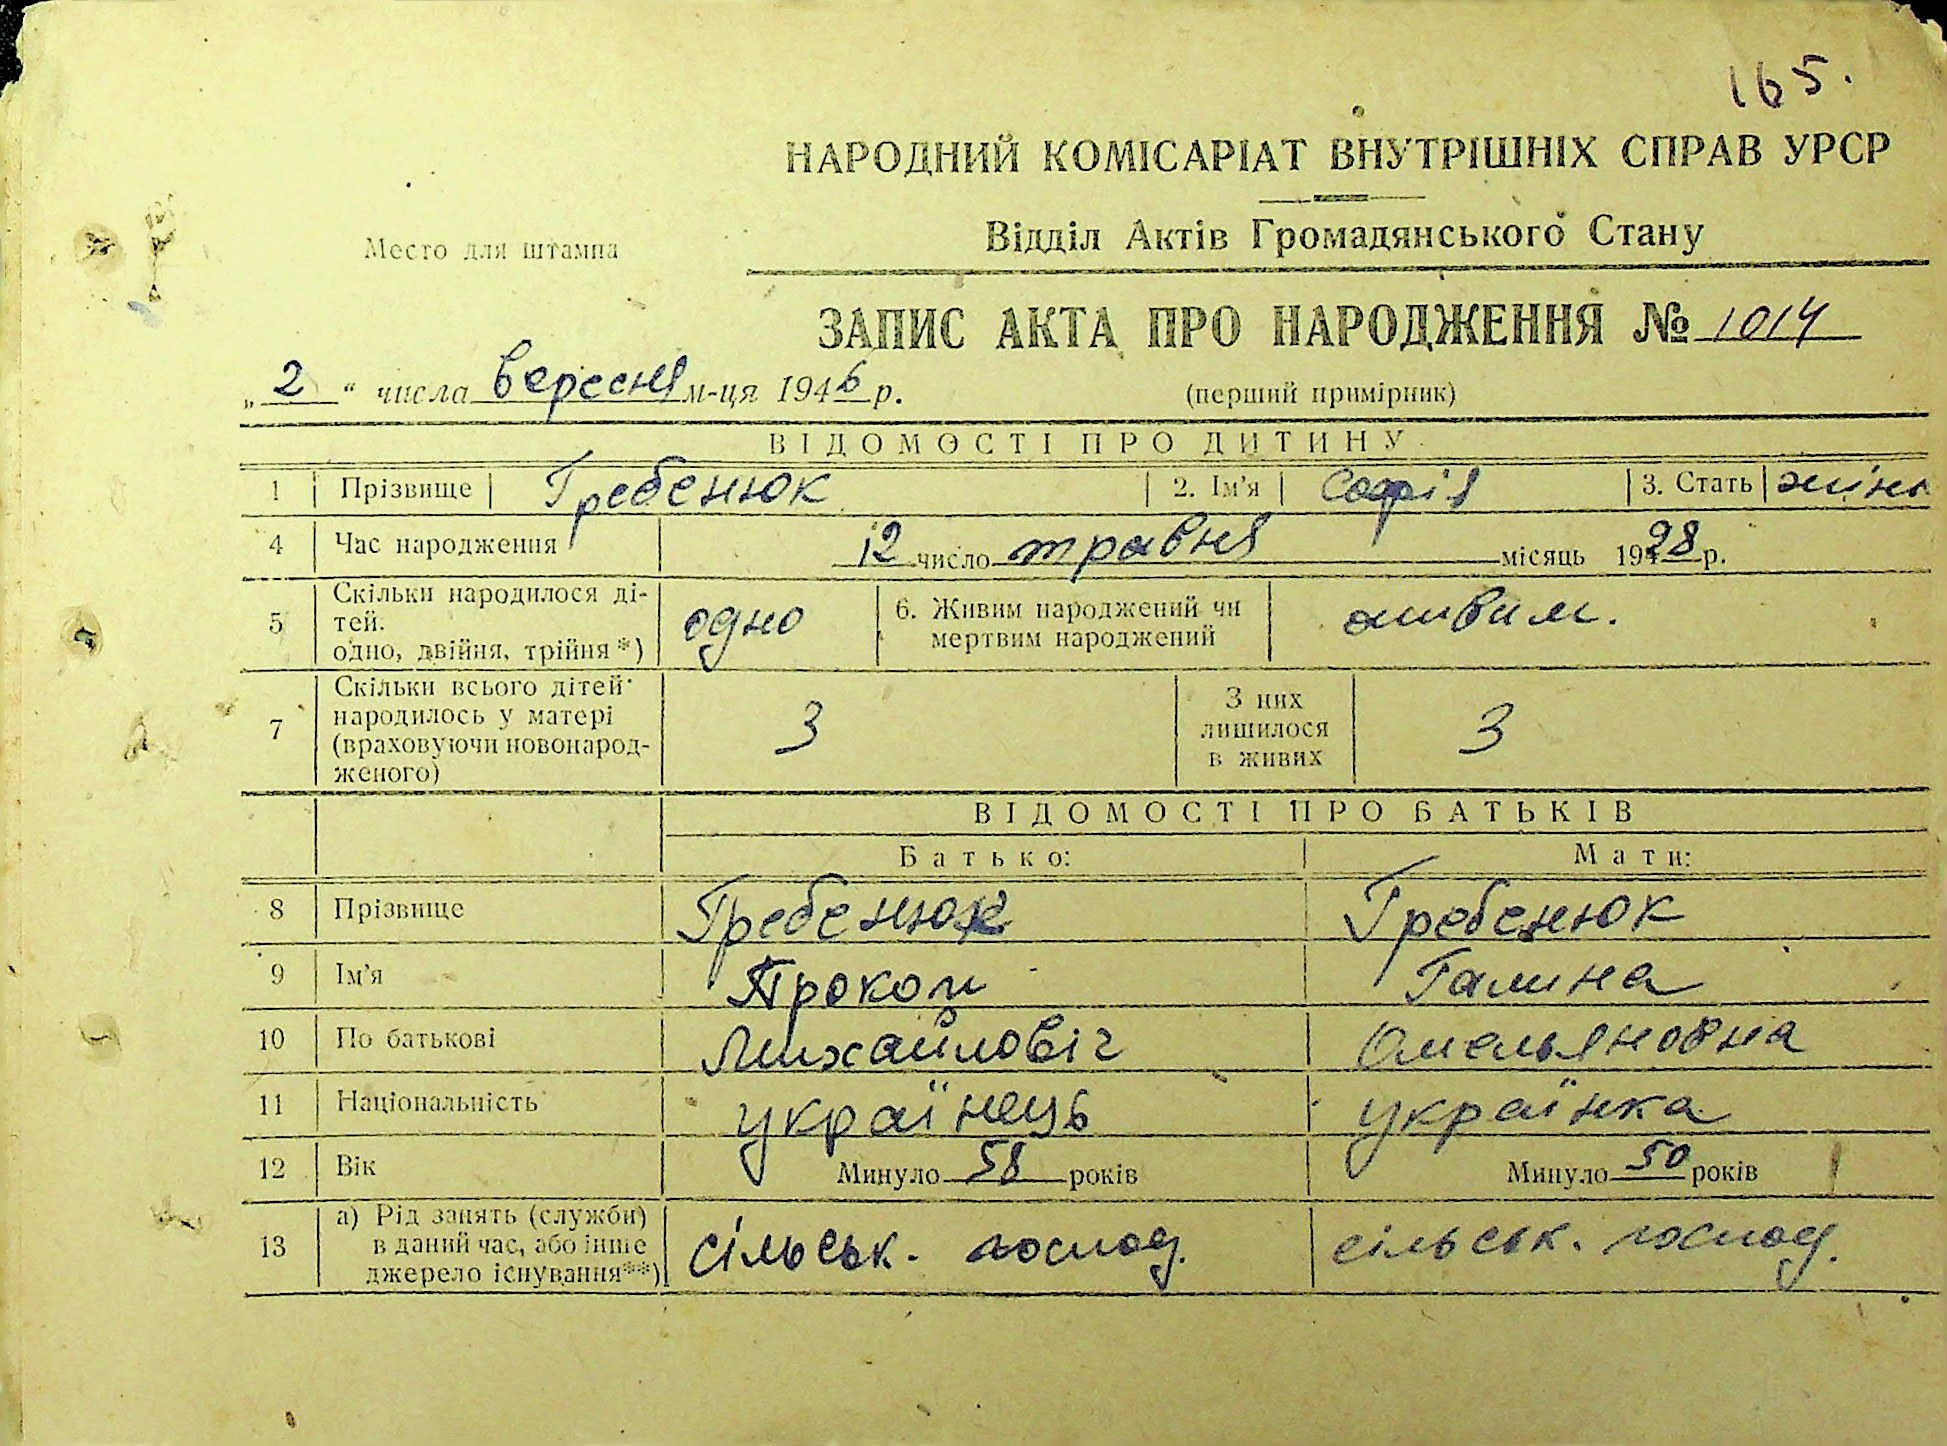 165.
НАРОДНИЙ КОМІСАРІАТ ВНУТРІШНІХ СПРАВ УРСР
Відділ Актів Громадянського Стану
Место для штампа
ЗАПИС АКТА ПРО НАРОДЖЕННЯ № 1014
„ 2 “ числа вересня м-ця 1946 р.
(перший примірник)
ВІДОМОСТІ ПРО ДИТИНУ
1 Прізвище Гребенюк 2. Ім'я Софія 3. Стать жіноч
4 Час народження 12 число травня місяць 1928 р.
5 Скільки народилося ді-
тей.
одно, двійня, трійня *) одно
6. Живим народжений чи
мертвим народжений живим.
7 Скільки всього дітей
народилось у матері
(враховуючи новонарод-
женого) 3
З них
лишилося
в живих 3
ВІДОМОСТІ ПРО БАТЬКІВ
Батько: Мати:
8 Прізвище Гребенюк Гребенюк
9 Ім'я Прокоп Галина
10 По батькові Михайловіч Омельяновна
11 Національність українець українка
12 Вік Минуло 58 років Минуло 50 років
13 а) Рід занять (служби)
в даний час, або інше
джерело існування**) сільськ. господ. сільськ. господ.